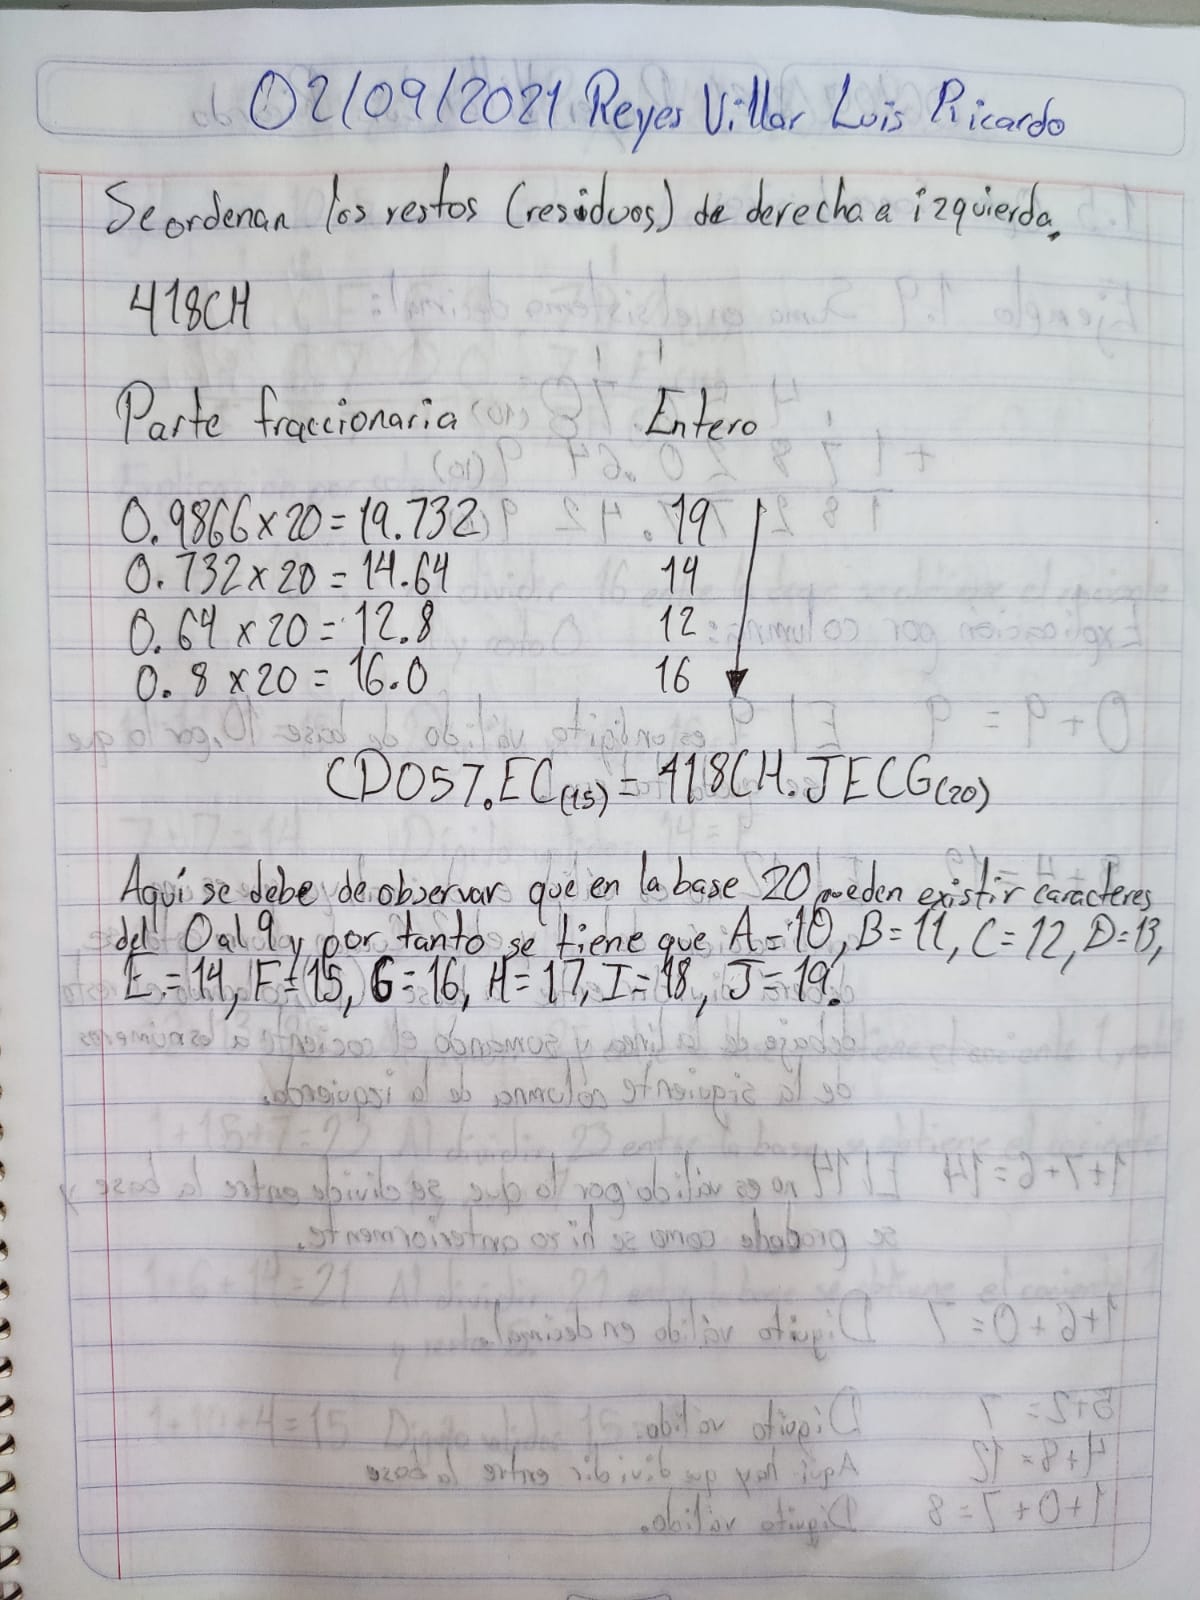 02/09/2021 Reyes Villar Luis Ricardo
Se ordenan los restos (residuos) de derecha a izquierda.
418CH
Parte fraccionaria Entero
0.9866 x 20 = 19.732 19
0.732 x 20 = 14.64 14
0.64 x 20 = 12.8 12
0.8 x 20 = 16.0 16
CD057.EC(15) = 418CH.JECG(20)
Aquí se debe de observar que en la base 20 pueden existir caracteres
del 0 al 9 y por tanto se tiene que A=10, B=11, C=12, D=13,
E=14, F=15, G=16, H=17, I=18, J=19.